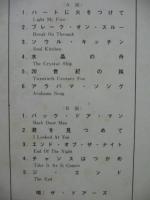 (A面)
1 ハートに火をつけて
Light My Fire
2 ブレーク・オン・スルー
Break On Through
3 ソウル・キッチン
Soul Kitchen
4 水晶の舟
The Crystal Ship
5 20世紀の狐
Twentieth Century Fox
6 アラバマ・ソング
Alabama Song
(B面)
1 バック・ドア・マン
Back Door Man
2 君を見つめて
I Looked At You
3 エンド・オブ・ザ・ナイト
End Of The Night
4 チャンスはつかめ
Take It As It Comes
5 ジ・エンド
The End
唄:ザ・ドアーズ